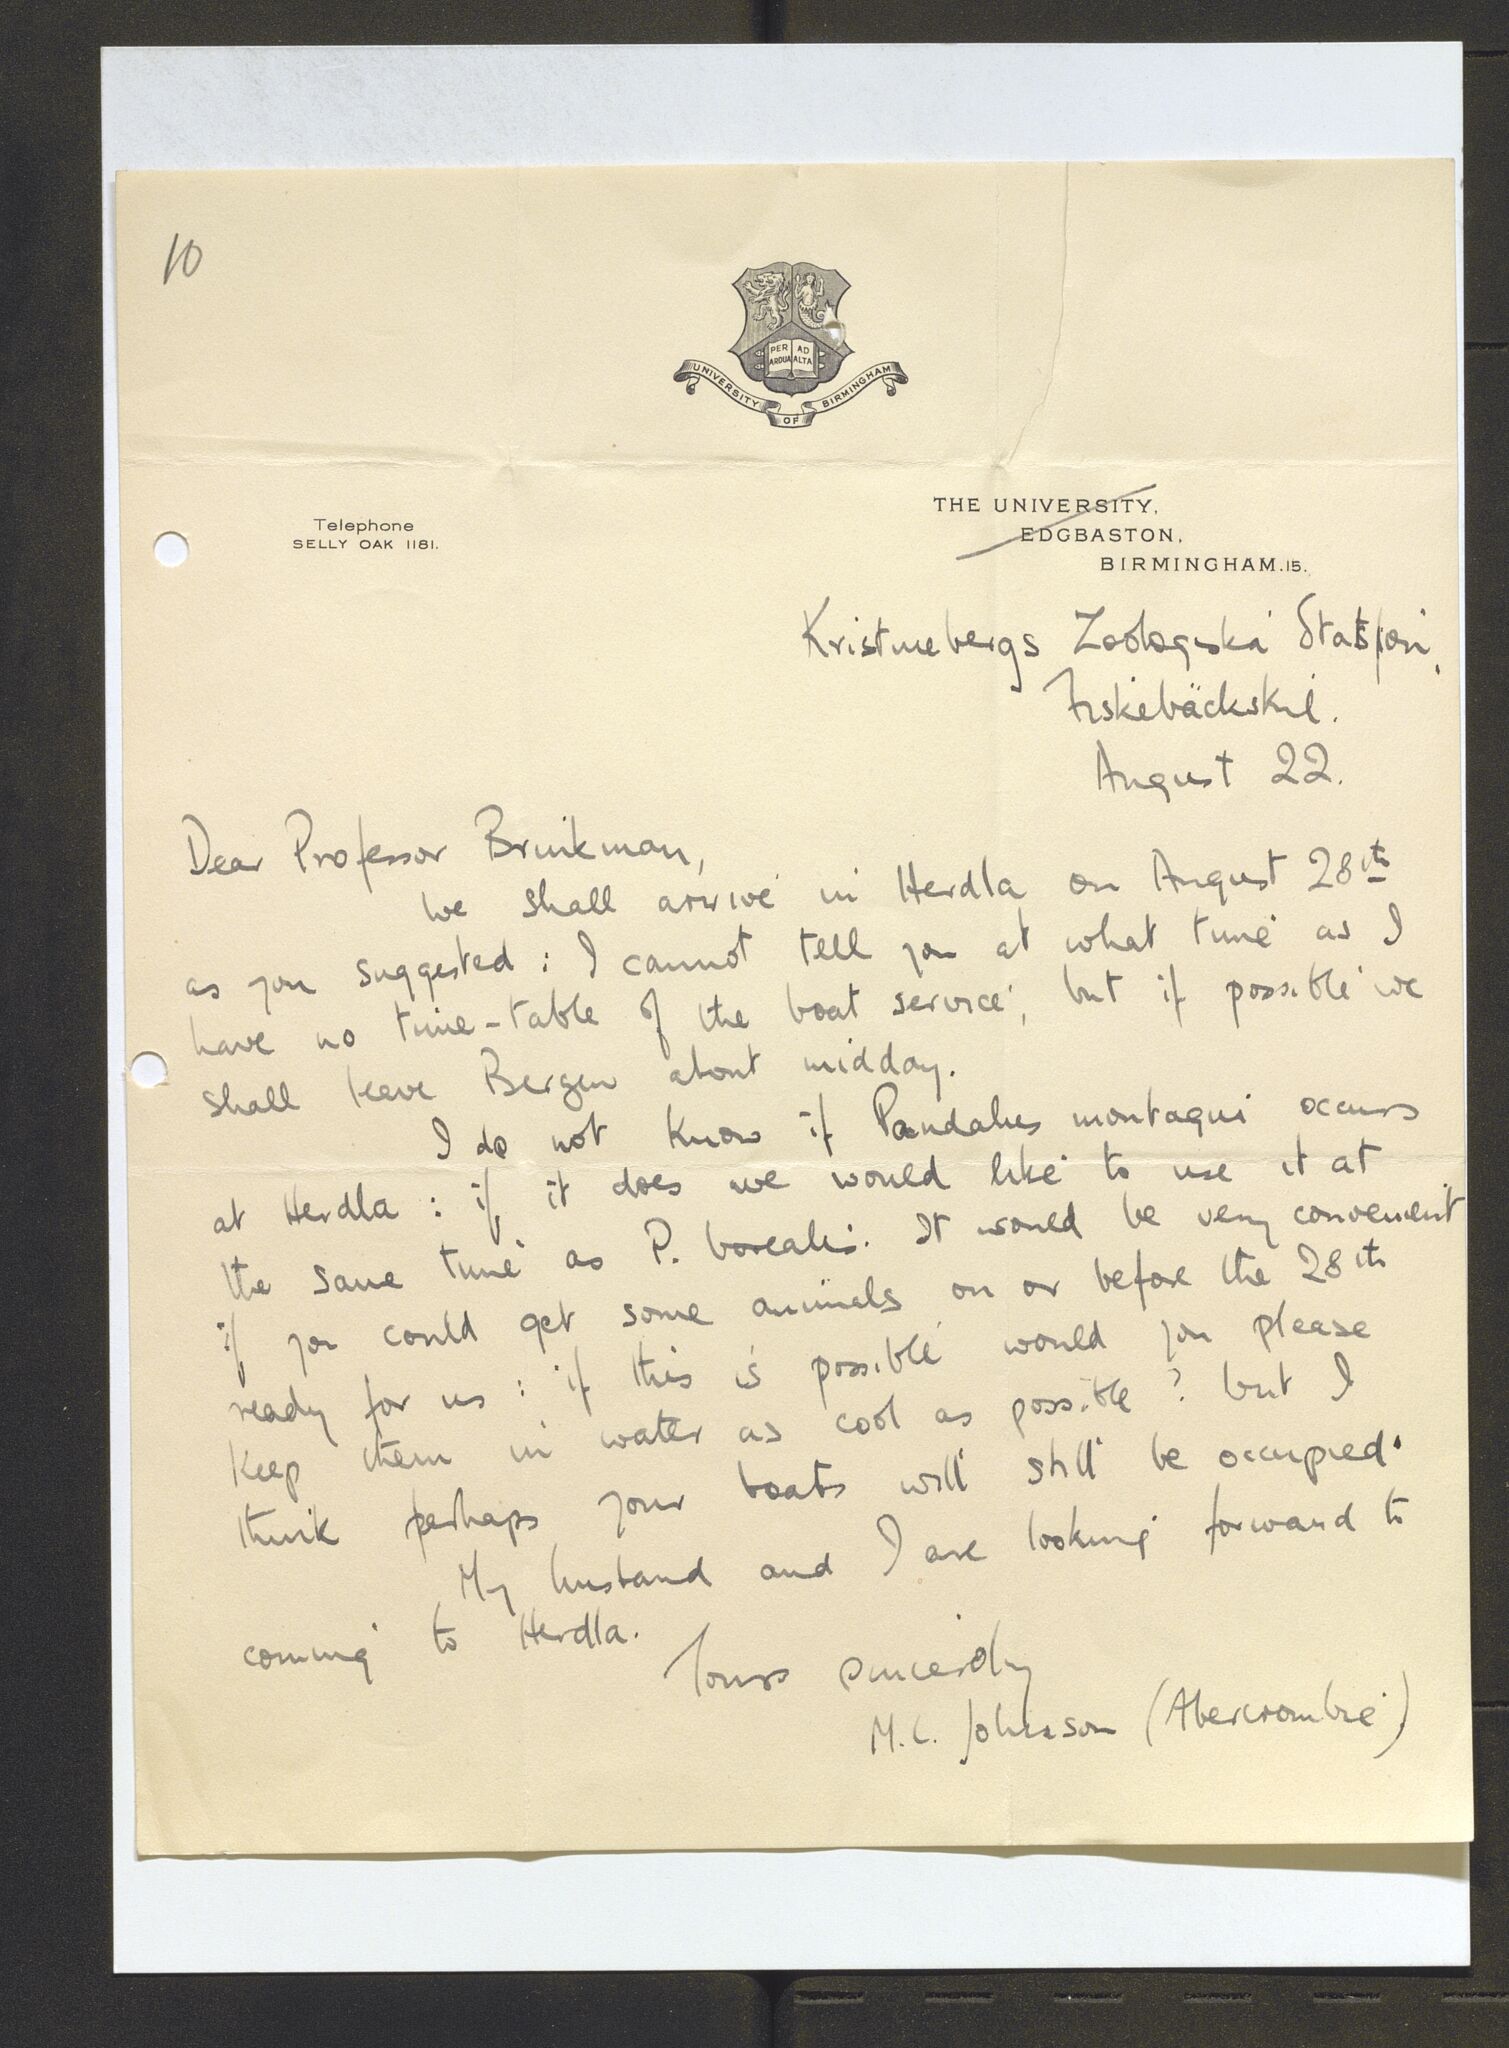 10
PER AD
ARDUA ALTA
UNIVERSITY OF BIRMINGHAM
Telephone
SELLY OAK 1181.
THE UNIVERSITY,
EDGBASTON,
BIRMINGHAM.15.
Kristinebergs Zoologiska Station,
Fiskebäckskil.
August 22.
Dear Professor Brinkman,
We shall arrive in Herdla on August 28th
as you suggested : I cannot tell you at what time as I
have no time-table of the boat service, but if possible we
shall leave Bergen about midday.
I do not know if Pandalus montagui occurs
at Herdla : if it does we would like to use it at
the same time as P. borealis. It would be very convenient
if you could get some animals on or before the 28th
ready for us : if this is possible would you please
keep them in water as cool as possible ? but I
think perhaps your boats will still be occupied.
My husband and I are looking forward to
coming to Herdla.
Yours sincerely
M.C. Johnson (Abercrombie)